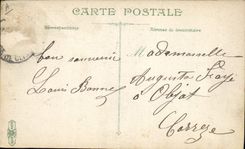 CARTE POSTALE
Correspondance
Adresse du destinataire
bon souvenir
Louis Bonne
Mademoiselle
Auguste
à Objat
Corrèze